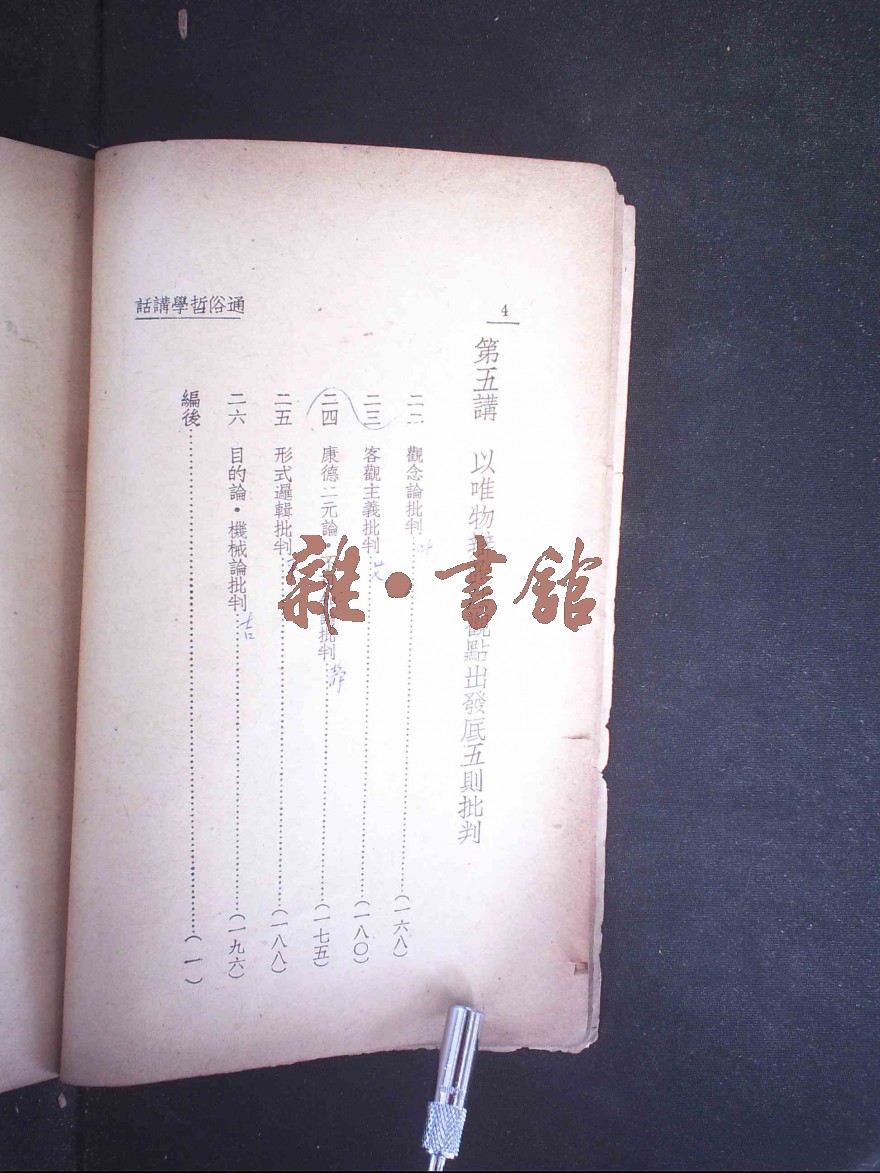 4
通俗哲學講話
第五講 以唯物觀點出發底五則批判
二二 觀念論批判……(一六八)
二三 客觀主義批判……(一八〇)
二四 康德二元論・批判……(一七五)
二五 形式邏輯批判……(一八八)
二六 目的論・機械論批判……(一九六)
吉
編後……(一)
雜・書館